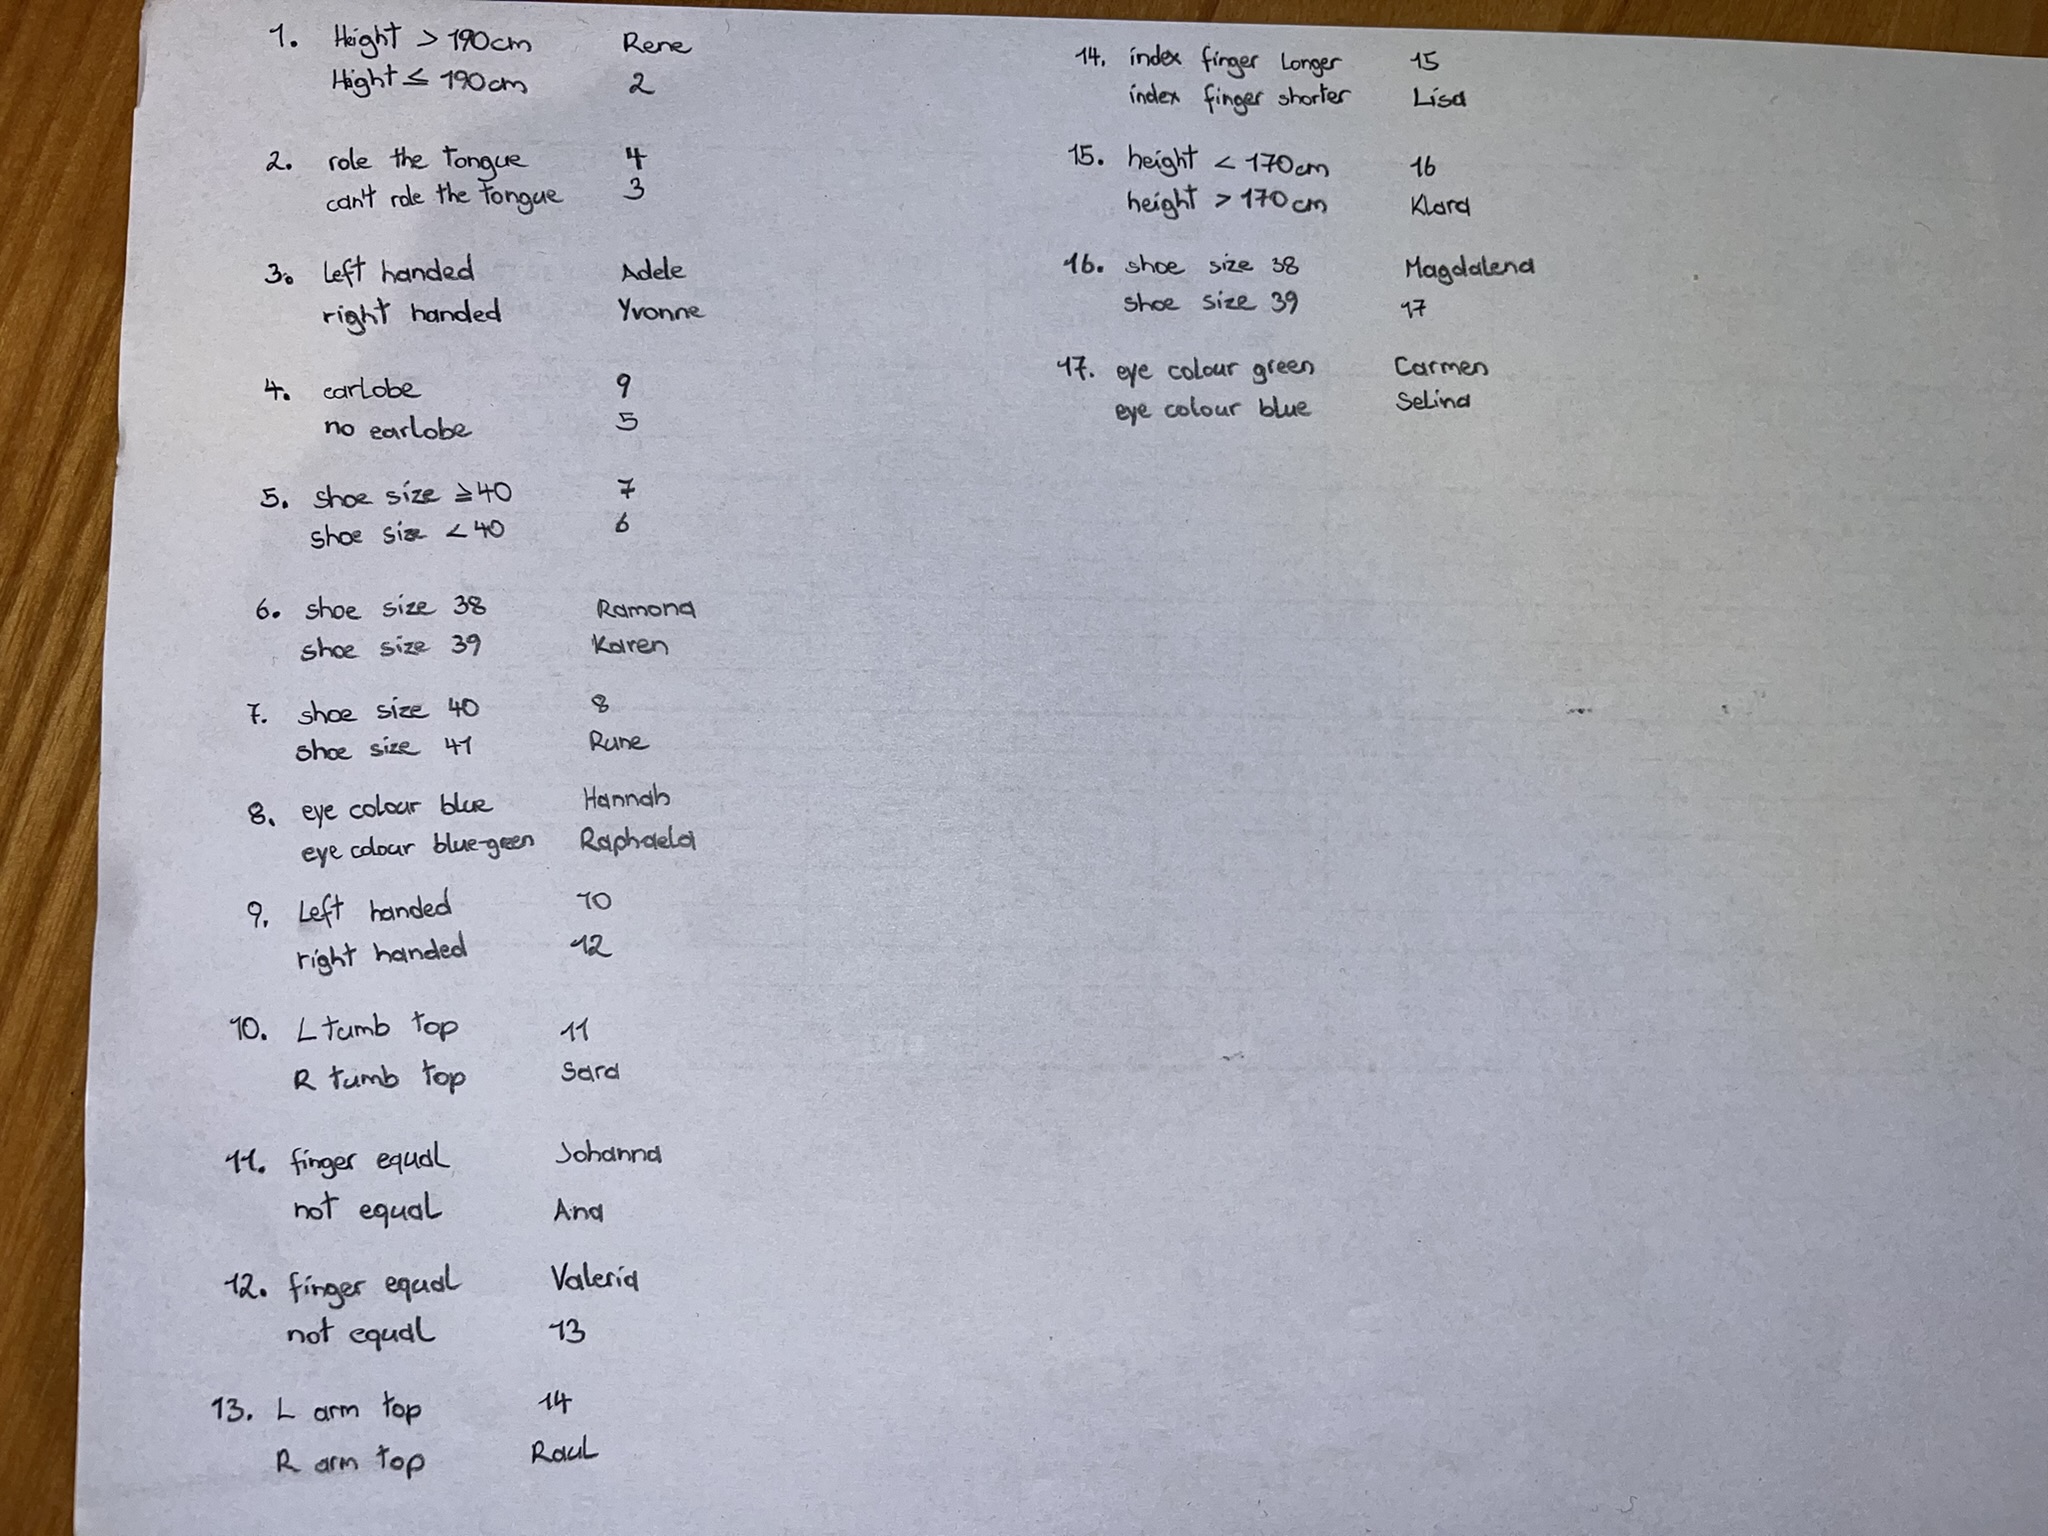 1. Height > 190cm Rene
Hight ≤ 190cm 2
2. role the tongue 4
can't role the tongue 3
3. left handed Adele
right handed Yvonne
4. earlobe 9
no earlobe 5
5. shoe size ≥40 7
shoe size <40 6
6. shoe size 38 Ramona
shoe size 39 Karen
7. shoe size 40 8
shoe size 41 Rune
8. eye colour blue Hannah
eye colour blue-green Raphaela
9. Left handed 10
right handed 12
10. L tumb top 11
R tumb top Sara
11. finger equal Johanna
not equal Ana
12. finger equal Valeria
not equal 13
13. L arm top 14
R arm top Raul
14. index finger longer 15
index finger shorter Lisa
15. height < 170cm 16
height > 170cm Klara
16. shoe size 38 Magdalena
shoe size 39 17
17. eye colour green Carmen
eye colour blue Selina